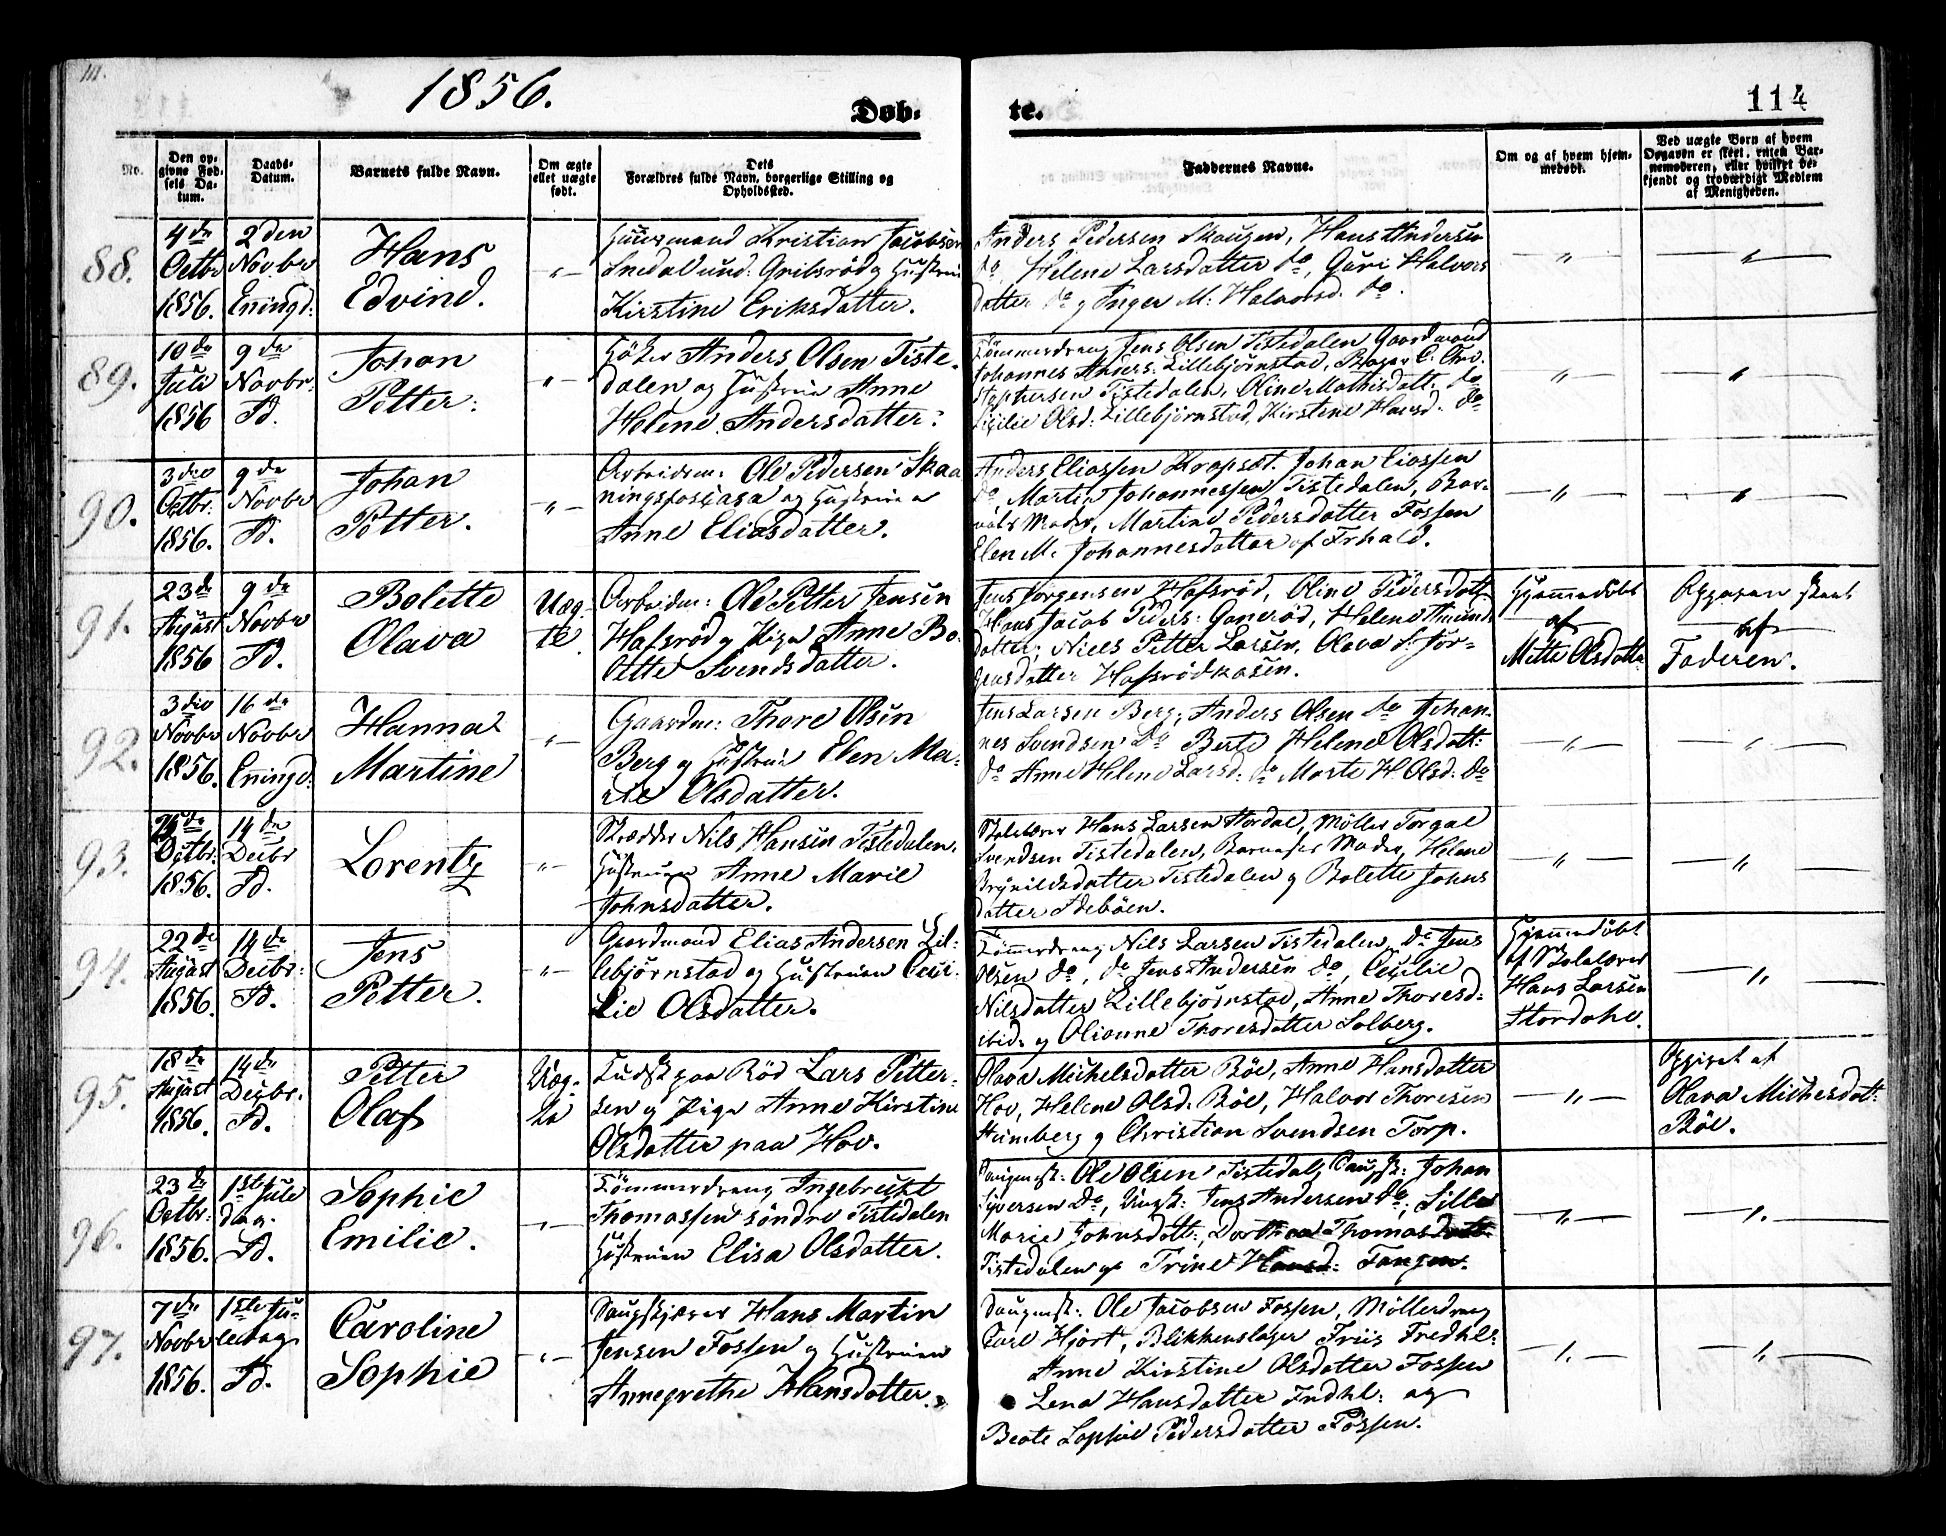 1856.
Døb-
te.
114
No.
Den op-
givne Fød-
sels Da-
tum.
Daabs-
Datum.
Barnets fulde Navn.
Om ægte
ellet uægte
født.
Dets
Forældres fulde Navn, borgerlige Stilling og
Opholdssted.
Faddernes Navne.
Om og af hvem hjem-
medøbt.
Ved uægte Børn af hvem
Opgaven er skeet, enten Bar-
nemoderen, eller hvilket be-
kjendt og troværdigt Medlem
af Menigheden.
88.
4de
Octbr
1856.
2den
Novbr
Eningd:
Hans
Edvind.
Huusmand Kristian Jacobsen
Snedal und: Gribsrød og Hustru
Kirstine Eriksdatter.
Anders Pedersen Skougen, Hans Andersen
do, Helene Larsdatter do, Guri Halvors
datter do og Inger M: Halvorsd. do.
89.
10de
Juli
1856
9de
Novbr.
Id.
Johan
Petter.
Anders Olsen Tiste-
dalen og Hustru Anne
Helene Andersdatter.
Tømmerdreng Jens Olsen Tistedalen Gaardmand
Johannes Anders: Lillebjørnstad,
Tistedalen, Oline Mathisdatt: do
Cicilie Olsd: Lillebjørnstad, Kirstine Hansd. do
90.
3die
Octbr.
1856.
9de
Novbr
Id.
Johan
Petter.
Arbeidsm: Ole Pedersen Skaa
ningsfos og Hustruen
Anne Eliasdatter.
Anders Eliassen Krapsøt. Johan Eliassen
do Martin Johannessen Tistedalen, Bar-
nets Moder, Martine Pedersdatter Fossen
Elen M. Johannesdatter af Frhald.
91.
23de
August
1856
9de
Novbr
Id.
Bolette
Olava
Uæg-
te
Arbeidm: Ole Petter Jensen
Hafsrød og Pige Anne Bo-
lette Svendsdatter.
Jens Jørgensen Hafsrød, Oline Pedersdatt
Hans Jacob Peders: Ganerød, Helene Amunds
datter, Niels Petter Larsen, Olava S: Jør-
gensdatter Hafsrødkasen.
Hjemmedøbt
af
Mette Olsdatte
Opgaven skeet
af
Faderen.
92.
3die
Novbr
1856.
16de
Novbr
Eningd:
Hanna
Martine
Gaardm: Thore Olsen
Berg og Hustrue Elen Ma-
rie Olsdatter.
Jens Larsen Berg, Anders Olsen do Johan-
nes Svendsen do Berte Helene Olsdatt:
do Anne Helene Larsd: do Marte H. Olsd: do
93.
Octbr:
1856.
14de
Decbr
Id.
Lorentz
Skrædder Nils Hansen Tistedalen.
Hustruen Anne Marie
Johnsdatter.
Skolelærer Hans Larsen Stordal, Møller Torgal
Svendsen Tistedalen, Barnets Moder, Helene
Brynildsdatter Tistedalen og Bolette Johns
datter Idebøen.
94.
22de
August
1856.
14de
Decbr:
Id.
Jens
Petter.
Gaardmand Elias Andersen Lil-
lebjørnstad og Hustruen Ceci-
lie Olsdatter.
Tømmerdreng Nils Larsen Tistedalen, do Jens
Olsen do, do Jens Andersen do, Cecilie
Nilsdatter Lillebjørnstad, Anne Thoresd:
ibid: og Olianne Thoresdatter Solberg.
Hjemmedøbt
af Skolelærer
Hans Larsen
Stordahl.
95.
18de
August
1856.
14de
Decbr.
Id.
Petter
Olaf
Uæg-
te
paa Rød Lars Petter-
sen og Pige Anne Kirstine
Olsdatter paa Hov.
Olava Michelsdatter Bøe, Anne Hansdatter
Hov, Helene Olsd. Bøe, Halvor Thoresen
Humberg og Christian Svendsen Torp.
Opgivet af
Olava Michelsdat:
Bøe.
96.
23de
Octbr:
1856.
1ste Jule
dag.
Id.
Sophie
Emilie.
Tømmerdreng Ingebregt
Thomassen søndre Tistedalen
Hustruen Elisa Olsdatter.
Ole Olsen Tistedal, Johan
Syversen do, Jens Andersen do, Sille
Marie Johnsdatt:, Dorthea Thomasdatt.
Tistedalen og Trine Hansd: Tangen.
97.
7de
Novbr
1856.
1ste Ju-
ledag
Id.
Caroline
Sophie
Saugskjærer Hans Martin
Jensen Fossen og Hustruen
Annegrethe Hansdatter.
Saugmst: Ole Jacobsen Fossen, Møllerdreng
Carl Hjort, Blikkenslager Friis Fredhl:
Anne Kirstine Olsdatter Fossen
Lena Hansdatter Frdhl: og
Beate Sophie Pedersdatter Fossen.